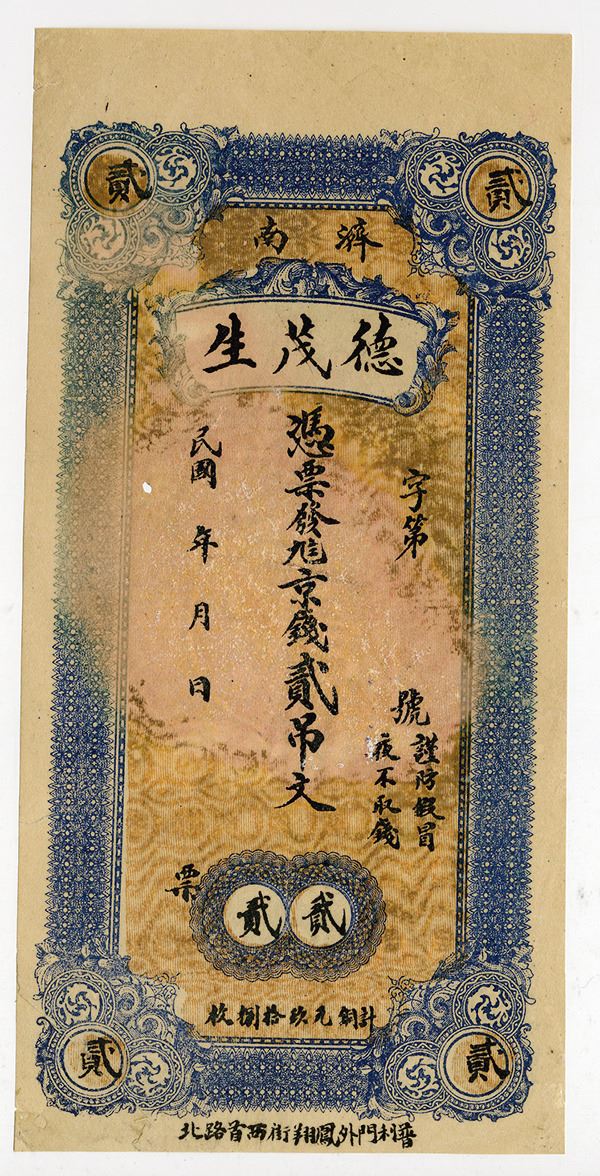 貳
貳
濟南
德茂生
字第 號
謹防假冒
夜不取錢
憑票發兌京錢貳吊文
民國 年 月 日
票
貳貳
計銅元玖拾捌枚
貳
貳
普利門外鳳翔街西首路北